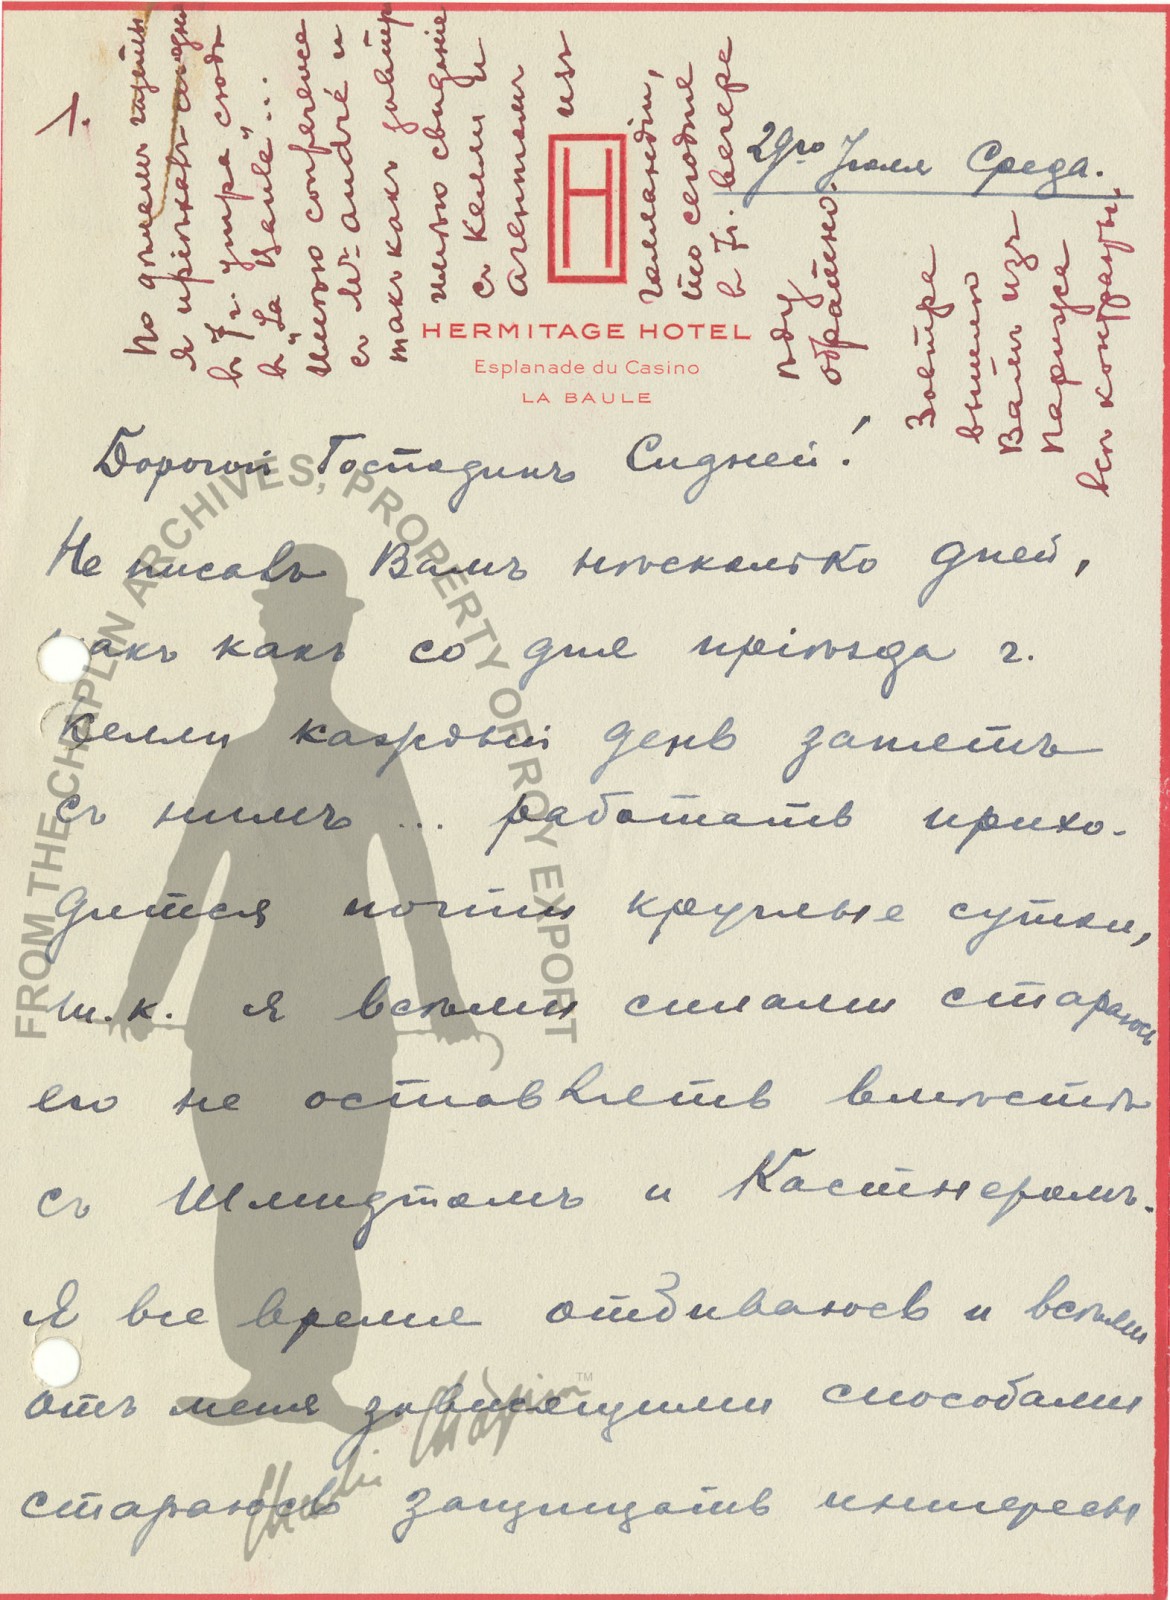 1.
По дѣламъ
я пріѣхалъ
въ 7 ч. утра сюда
въ "La Baule"...
Имѣю conference
съ Mr André и
такъ какъ завтра
имѣю свиданіе
съ Келли и
Агентомъ изъ
Голландіи,
то сегодня
въ 7 ч. вечера
ѣду
обратно.
Завтра
вышлю
Вамъ изъ
Парижа
всѣ контракты.
H
HERMITAGE HOTEL
Esplanade du Casino
LA BAULE
29го Іюля Среда.
Дорогой Господинъ Сидней!
Не писалъ Вамъ нѣсколько дней,
такъ какъ со дня пріѣзда г.
Келли каждый день занятъ
съ нимъ ... работать прихо-
дится почти круглые сутки,
т.к. я всѣми силами стараюсь
его не оставлять вмѣстѣ
съ Шмидтомъ и Кастнеромъ.
Я все время отбиваюсь и всѣми
отъ меня зависящими способами
стараюсь защищать интересы
FROM THE CHAPLIN ARCHIVES, PROPERTY OF ROY EXPORT
Charlie Chaplin™